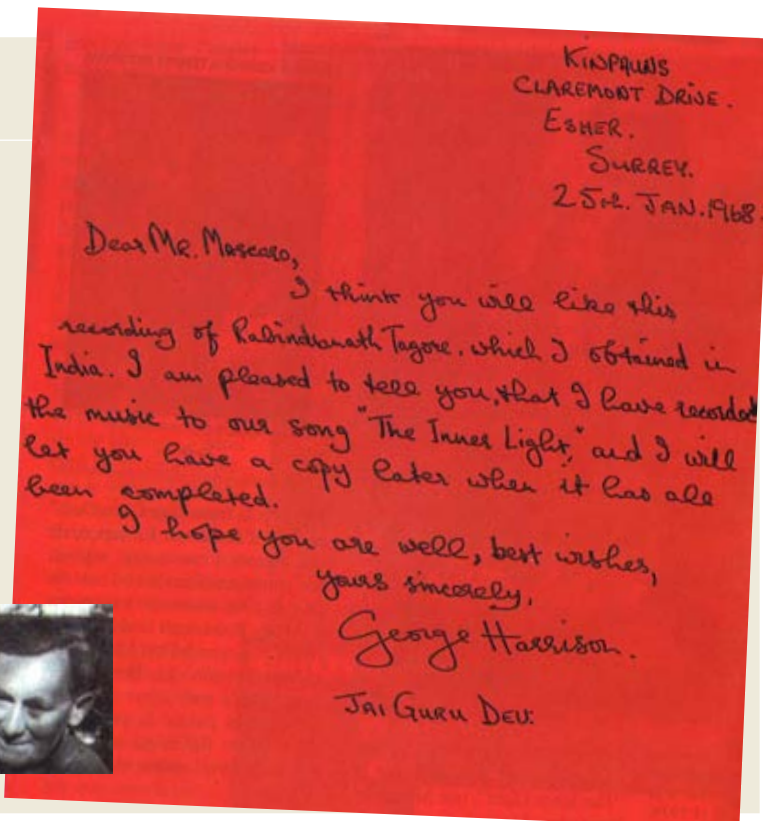 KINFAUNS
CLAREMONT DRIVE.
ESHER.
SURREY.
25th. JAN. 1968.
Dear Mr. Mascaro,
I think you will like this
recording of Rabindranath Tagore. which I obtained in
India. I am pleased to tell you, that I have recorded
the music to our song "The Inner Light," and I will
let you have a copy later when it has all
been completed.
I hope you are well, best wishes,
yours sincerely,
George Harrison.
JAI GURU DEV.